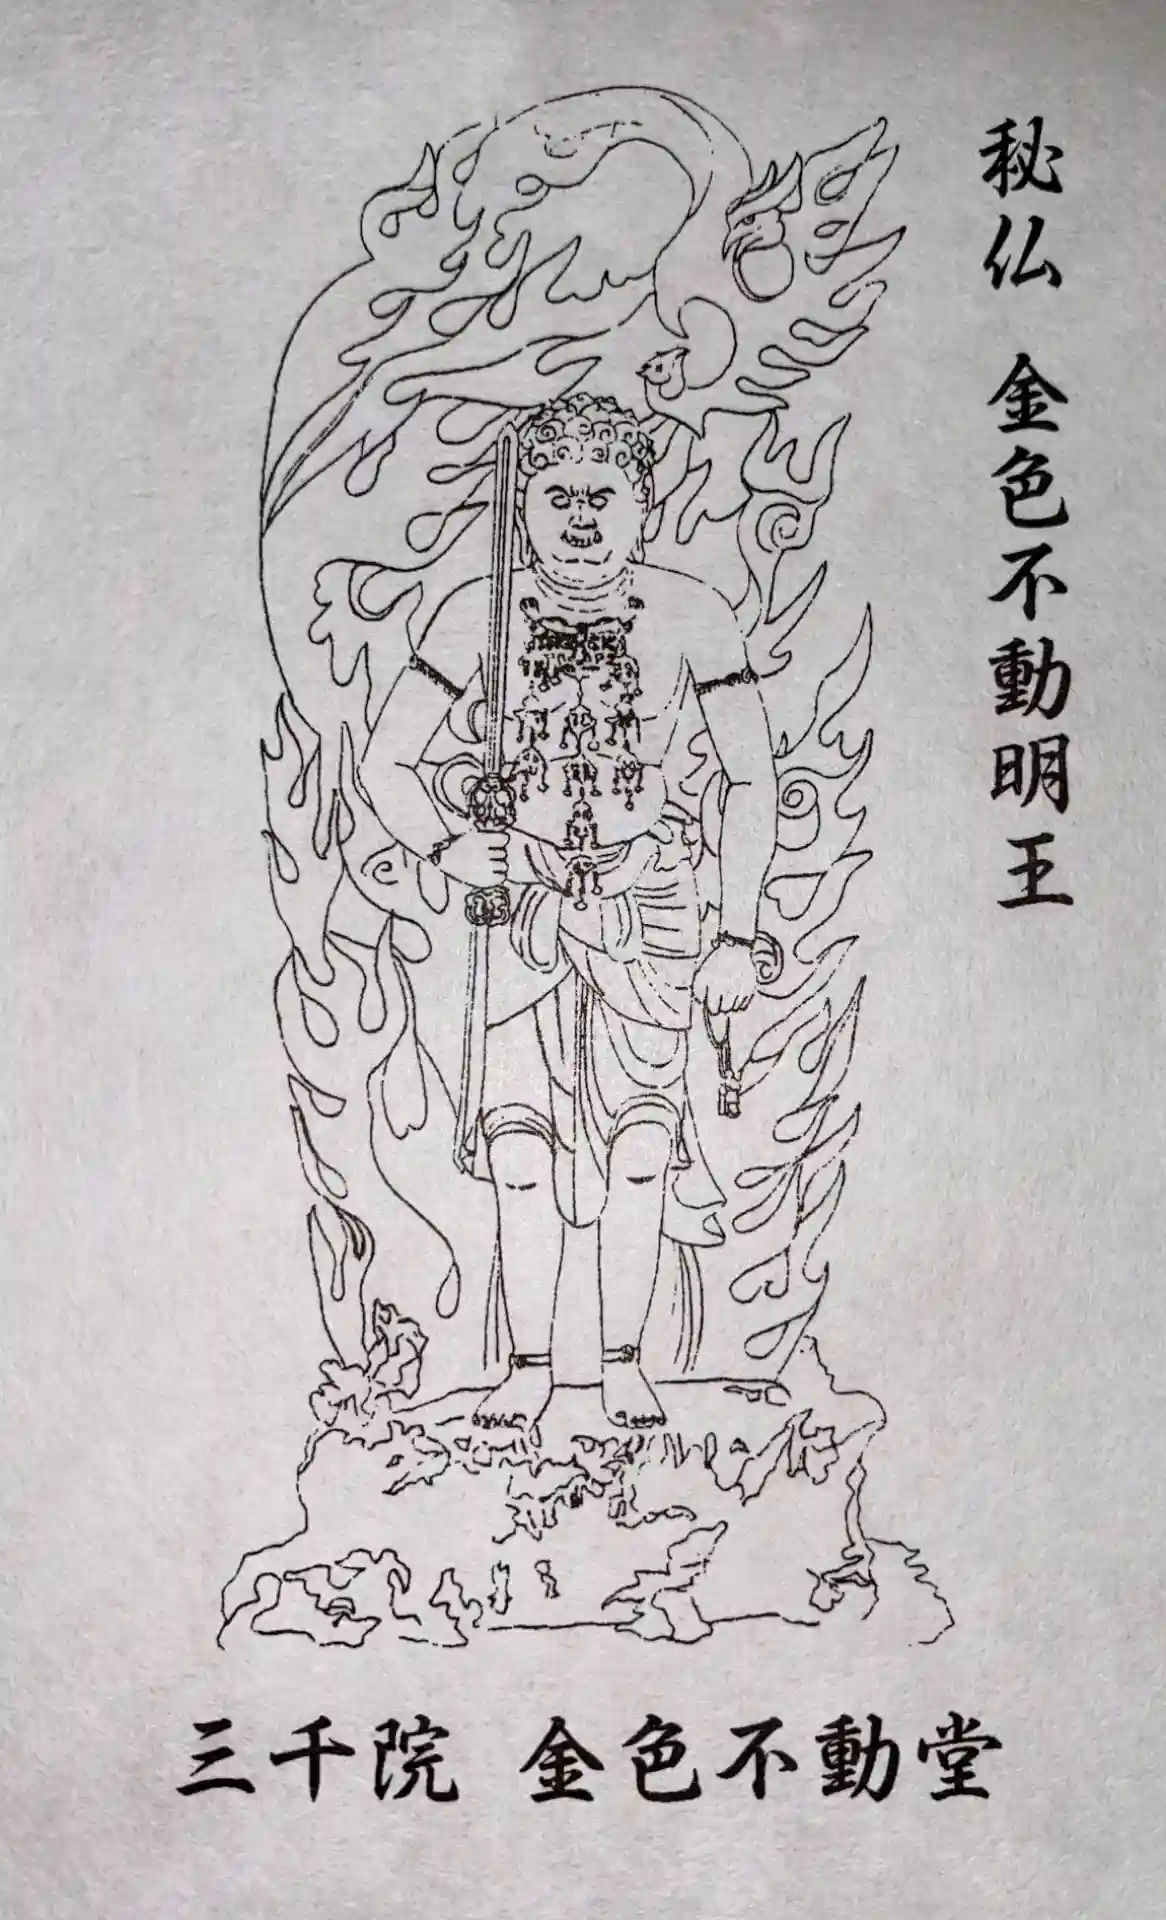 秘仏 金色不動明王
三千院 金色不動堂